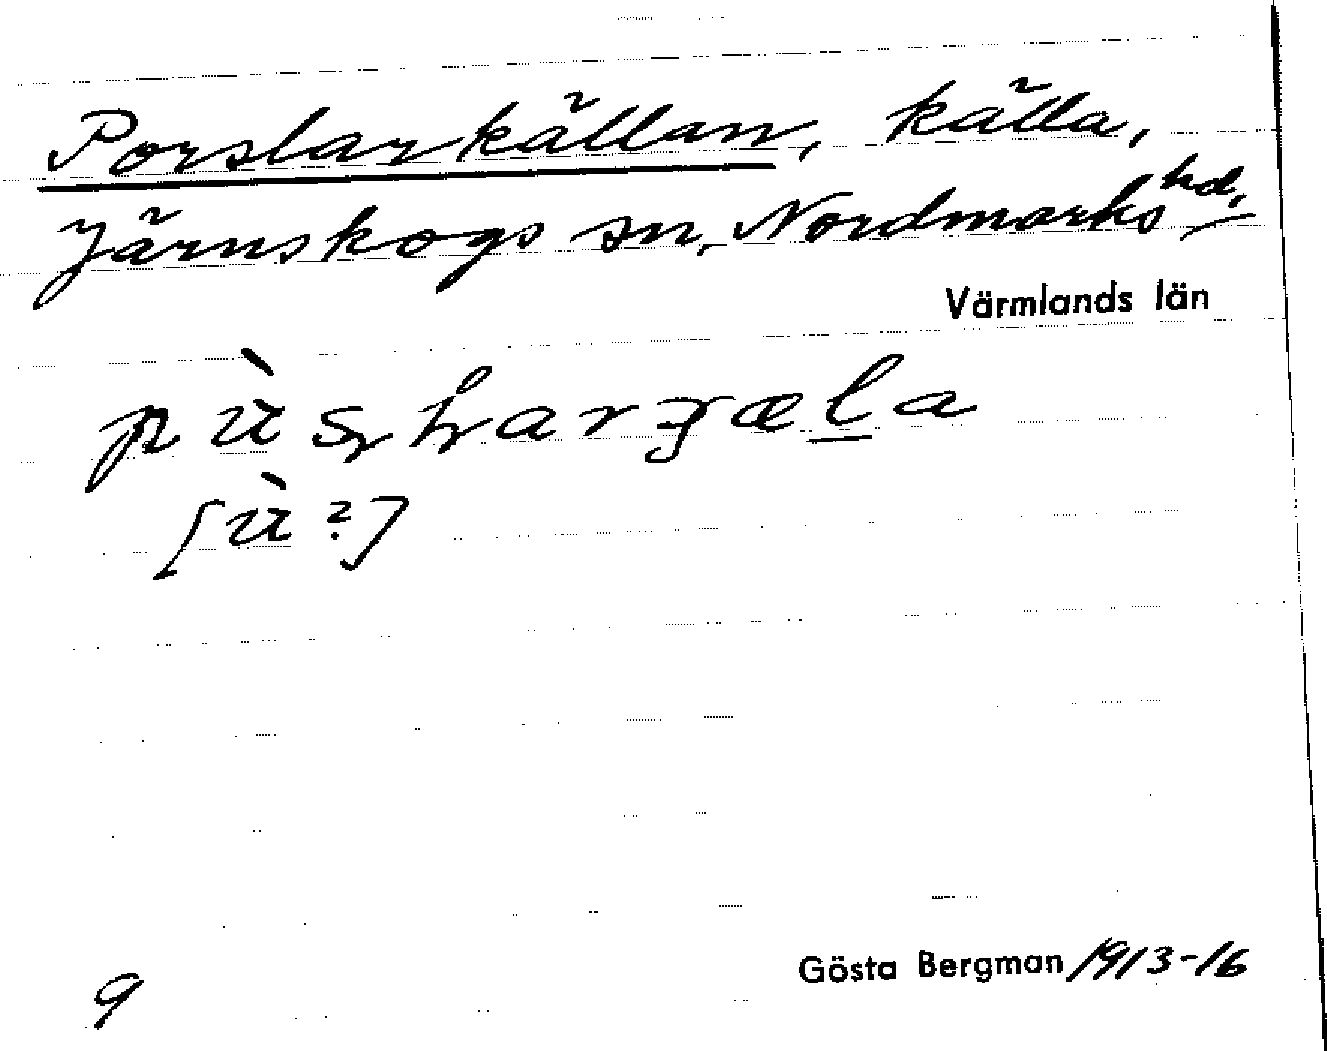 Porslarkällan, källa,
Järnskogs sn, Nordmarks hd,
Värmlands län
[ù?]
Gösta Bergman 1913-16
9